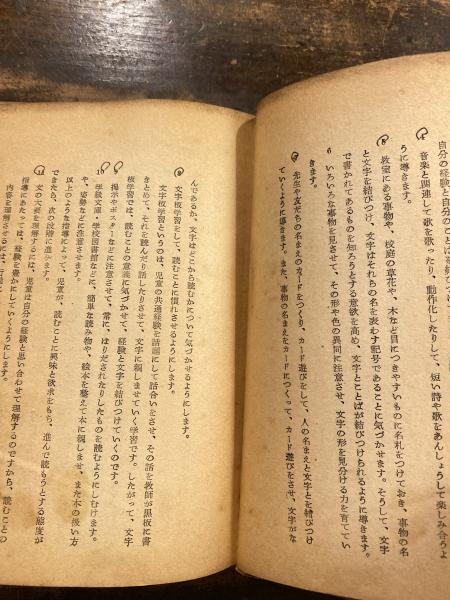 自分の経験と自分のことばを結びつけ
音楽と関連して歌を歌ったり、動作化したりして、短い詩や歌をあんしょうして楽しみ合うよ
うに導きます。
教室にある事物や、校庭の草花や、木など目につきやすいものに名札をつけておき、事物の名
と文字を結びつけ、文字はそれぞれの名を表わす記号であることに気づかせます。そうして、文字
で書かれてあるものを知ろうとする意欲を高め、文字とことばが結びつけられるように導きます。
6 いろいろな事物を見させて、その形や色の異同に注意させ、文字の形を見分ける力を育ててい
きます。
先生や友だちの名まえのカードをつくり、カード遊びをして、人の名まえと文字とを結びつけ
ていくように導きます。また、事物の名まえをカードにつくって、カード遊びをさせ、文字がな
んであるか、文字はどこから読むかについて気づかせるようにします。
8 文字板学習をして、読むことに慣れさせるようにします。
文字板学習というのは、児童の共通経験を話題にして話合いをさせ、その話を教師が黒板に書
きとめて、それを読んだり話したりさせて、文字に親しませていく学習です。したがって、文字
板学習では、読むことの意義に気づかせて、経験と文字を結びつけていくのです。
9 掲示やポスターなどに注意させて、常に、はりだされたりしたものを読むようにしむけます。
10 学級文庫・学校図書館などに、簡単な読み物や、絵本を整えて本に親しませ、また本の扱い方
や、姿勢などに注意させます。
以上のような指導によって、児童が、読むことに興味と欲求をもち、進んで読もうとする態度が
できたら、次の段階に進みます。
11 文の大要を理解するには、児童は自分の経験と思い合わせて理解するのですから、読むことの
指導にあたっては、経験を豊かにしていくようにします。
内容を理解させるには、行動に